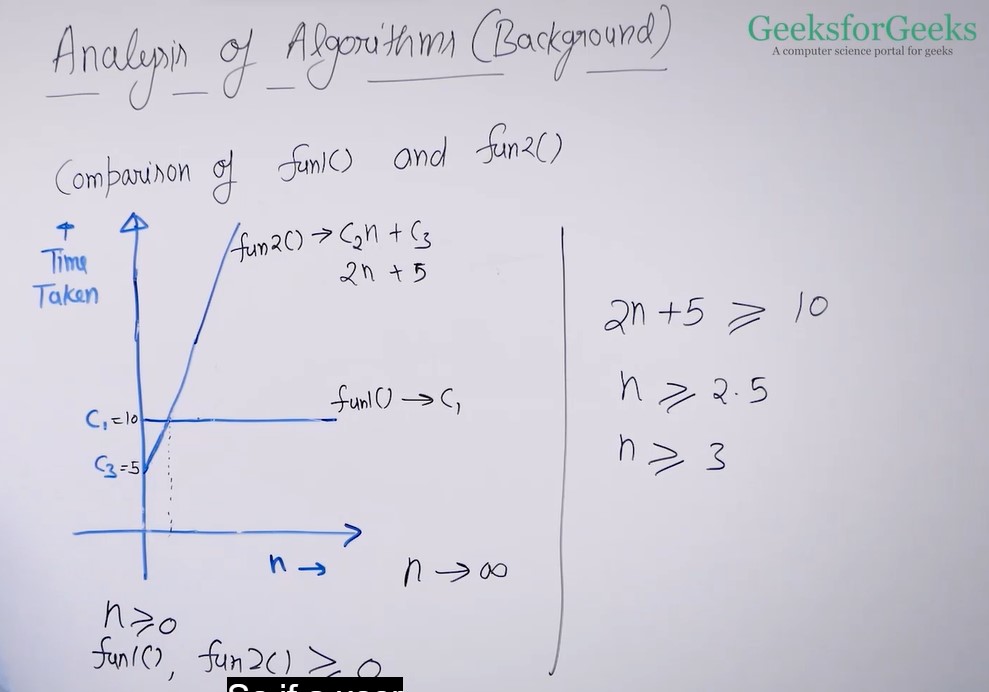 Analysis of Algorithms (Background)
GeeksforGeeks
A computer science portal for geeks
Comparison of fun1() and fun2()
↑
Time
Taken
fun2() → C₂n + C₃
2n + 5
C₁=10
fun1() → C₁
C₃=5
n →
n → ∞
n ⩾ 0
fun1(), fun2() ⩾ 0
2n + 5 ⩾ 10
n ⩾ 2.5
n ⩾ 3
So if a user